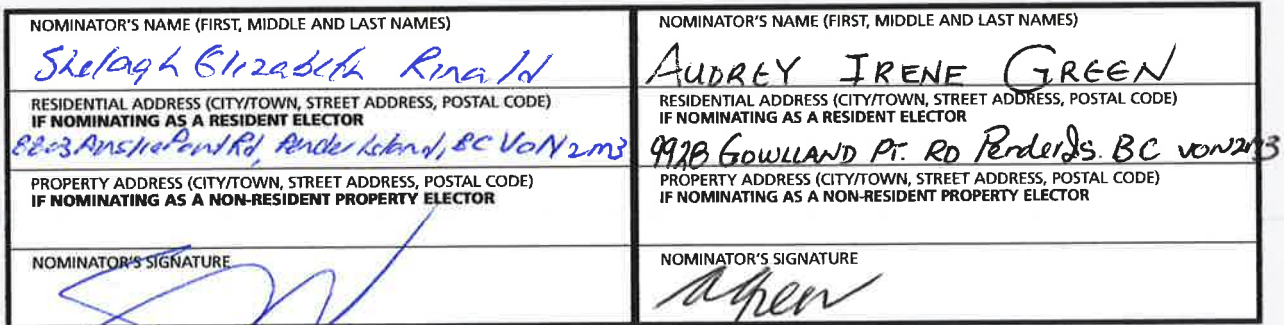 NOMINATOR'S NAME (FIRST, MIDDLE AND LAST NAMES)
Shelagh Elizabeth Rinald
RESIDENTIAL ADDRESS (CITY/TOWN, STREET ADDRESS, POSTAL CODE)
IF NOMINATING AS A RESIDENT ELECTOR
Rd, Pender Island, BC V0N 2M3
PROPERTY ADDRESS (CITY/TOWN, STREET ADDRESS, POSTAL CODE)
IF NOMINATING AS A NON-RESIDENT PROPERTY ELECTOR
NOMINATOR'S SIGNATURE
NOMINATOR'S NAME (FIRST, MIDDLE AND LAST NAMES)
AUDREY IRENE GREEN
RESIDENTIAL ADDRESS (CITY/TOWN, STREET ADDRESS, POSTAL CODE)
IF NOMINATING AS A RESIDENT ELECTOR
992B GOWLLAND PT. RD Pender Is. BC V0N 2M3
PROPERTY ADDRESS (CITY/TOWN, STREET ADDRESS, POSTAL CODE)
IF NOMINATING AS A NON-RESIDENT PROPERTY ELECTOR
NOMINATOR'S SIGNATURE
AGreen